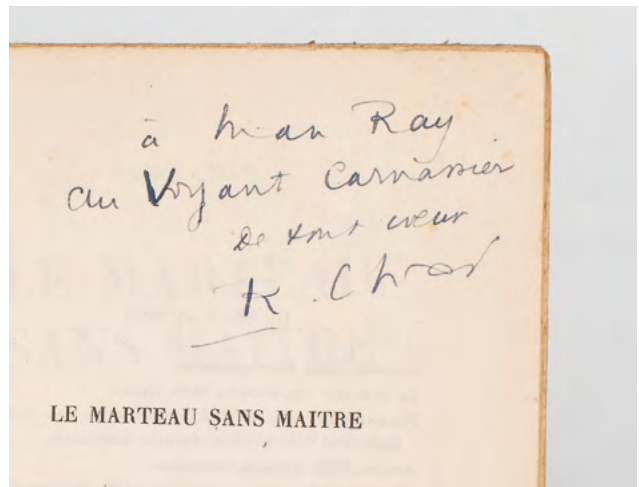 à Man Ray
au Voyant Carnassier
de tout cœur
R. Char
LE MARTEAU SANS MAITRE